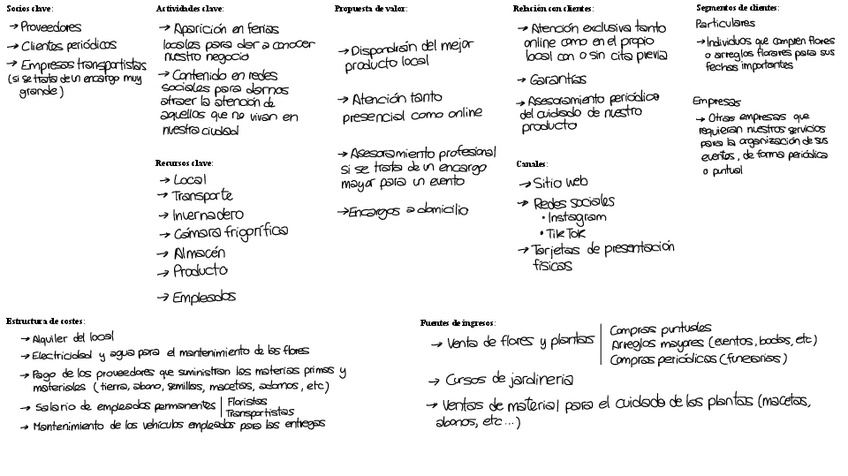 Socios clave:
→ Proveedores
→ Clientes periódicos
→ Empresas transportistas
(si se trata de un encargo muy
grande)
Actividades clave:
→ Aparición en ferias
locales para dar a conocer
nuestro negocio
→ Contenido en redes
sociales para darnos
atraer la atención de
aquellos que no vivan en
nuestra ciudad
Recursos clave:
→ Local
→ Transporte
→ Invernadero
→ Cámara frigorífica
→ Almacén
→ Producto
→ Empleados
Propuesta de valor:
→ Dispondrán del mejor
producto local
→ Atención tanto
presencial como online
→ Asesoramiento profesional
si se trata de un encargo
mayor para un evento
→ Encargos a domicilio
Relación con clientes:
→ Atención exclusiva tanto
online como en el propio
local con o sin cita previa
→ Garantías
→ Asesoramiento periódico
del cuidado de nuestro
producto
Canales:
→ Sitio web
→ Redes sociales
• Instagram
• TikTok
→ Tarjetas de presentación
físicas
Segmentos de clientes:
Particulares
→ Individuos que compren flores
o arreglos florares para sus
fechas importantes
Empresas
→ Otras empresas que
requieran nuestros servicios
para la organización de sus
eventos, de forma periódica
o puntual
Estructura de costes:
→ Alquiler del local
→ Electricidad y agua para el mantenimiento de las flores
→ Pago de los proveedores que suministran las materias primas y
materiales (tierra, abono, semillas, macetas, adornos, etc)
→ Salario de empleados permanentes | Floristas
Transportistas
→ Mantenimiento de los vehículos empleados para las entregas
Fuentes de ingresos:
→ Venta de flores y plantas | Compras puntuales
Arreglos mayores (eventos, bodas, etc)
Compras periódicas (funerarias)
→ Cursos de jardinería
→ Ventas de material para el cuidado de las plantas (macetas,
abonos, etc...)